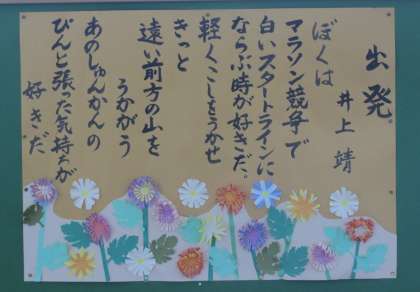 出発
井上靖
ぼくは
マラソン競争で
白いスタートラインに
ならぶ時が好きだ、
軽くこしをうかせ
きっと
遠い前方の山を
うかがう
あのしゅんかんの
ぴんと張った気持ちが
好きだ